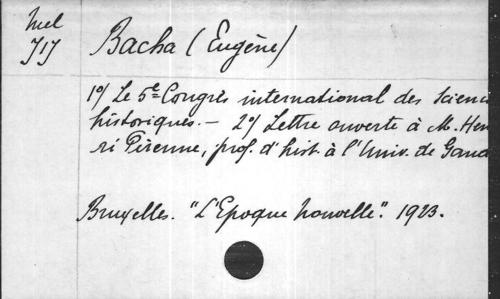 Mel
717
Bacha (Eugène)
1º/ Le 5e Congrès international des Scienc
historiques. — 2º/ Lettre ouverte à M. Hen
ri Pirenne, prof. d'hist. à l'Univ. de Gand
Bruxelles. "L'Epoque Nouvelle". 1923.